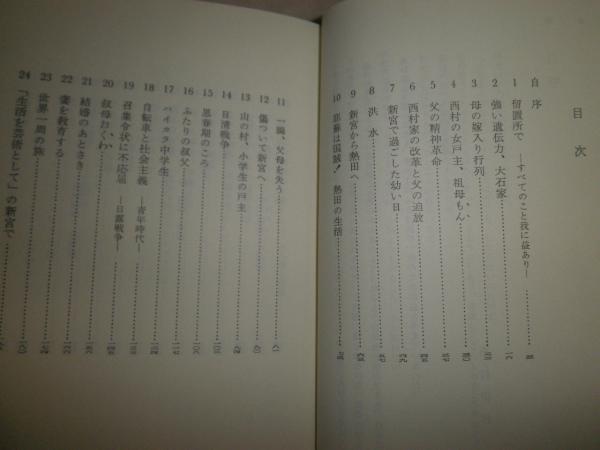 目次
自序
1 留置所で ―すべてのこと我に益あり―
2 強い遺伝力、大石家
3 母の嫁入り行列
4 西村の女戸主、祖母もん
5 父の精神革命
6 西村家の改革と父の追放
7 新宮で過ごした幼い日
8 洪水
9 新宮から熱田へ
10 耶蘇は国賊！ 熱田の生活
11 一瞬、父母を失う
12 傷ついて新宮へ
13 山の村、小学生の戸主
14 日清戦争
15 思春期のころ
16 ふたりの叔父
17 ハイカラ中学生
18 自転車と社会主義 ―青年時代―
19 召集令状に不応届 ―日露戦争―
20 叔母おくわ
21 結婚のあとさき
22 妻を教育する
23 世界一周の旅
24 「生活を芸術として」の新宮で